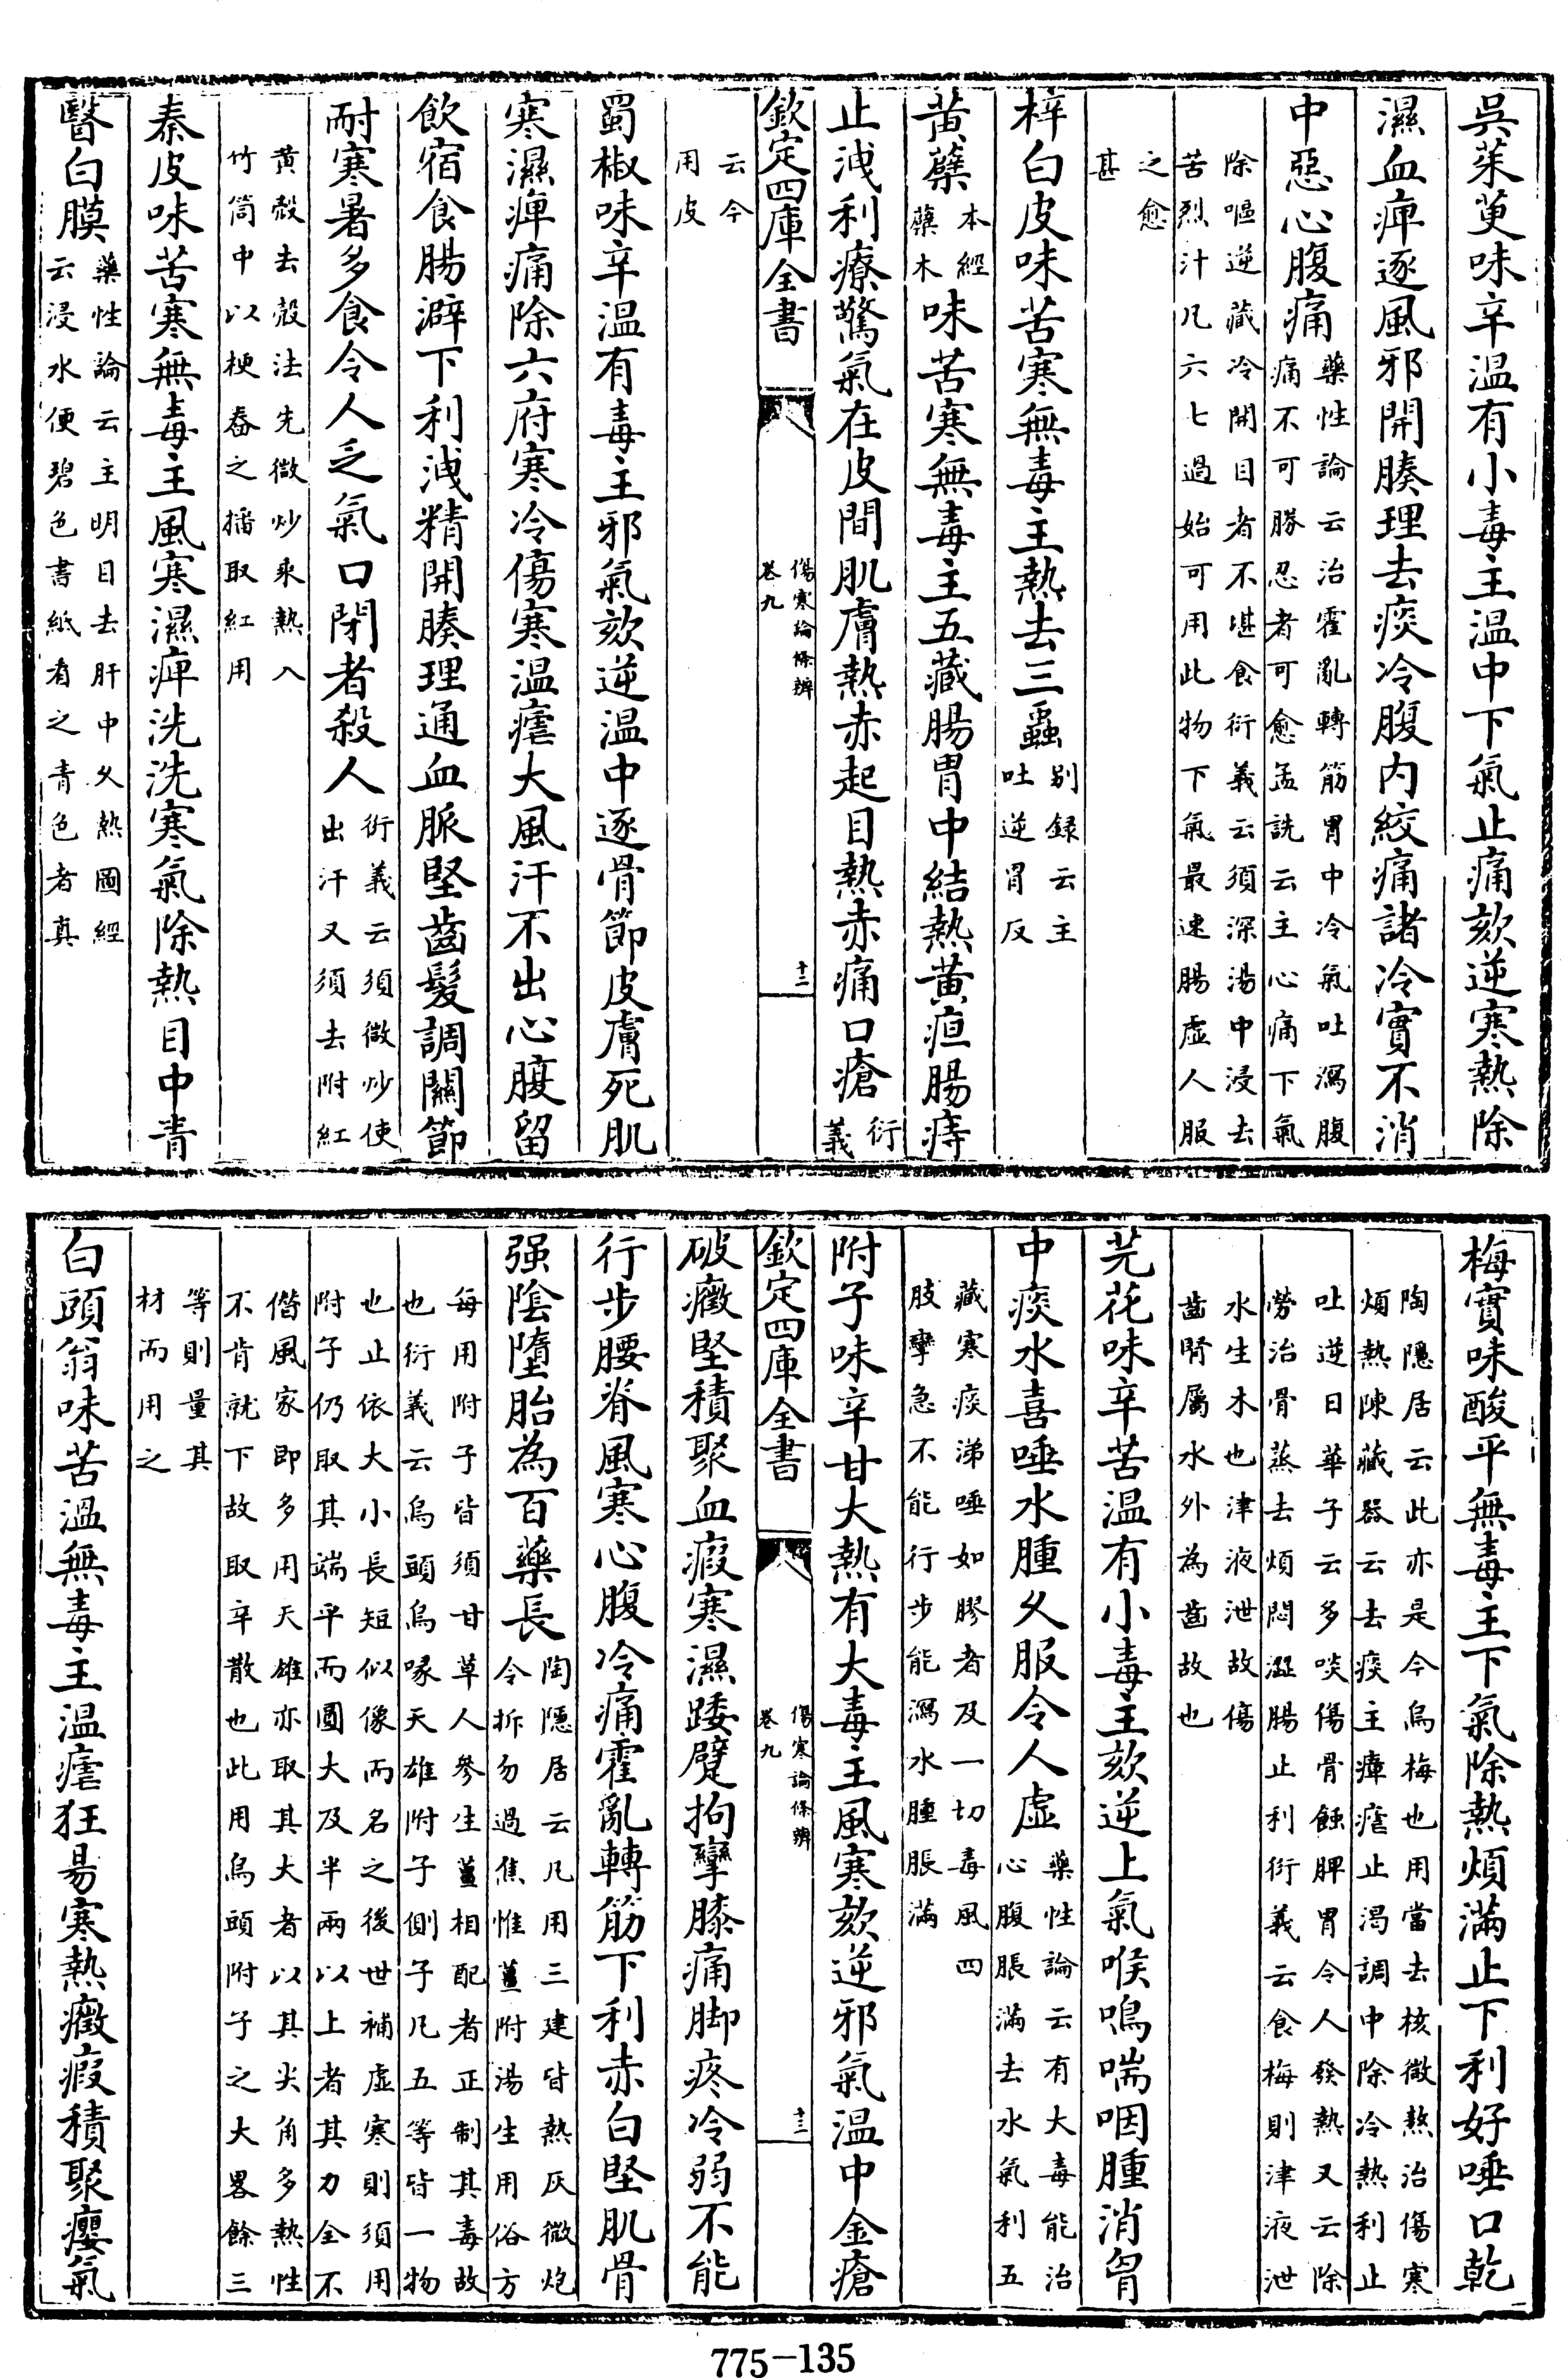 吳茱萸味辛温有小毒主温中下氣止痛欬逆寒熱除
濕血痺逐風邪開腠理去痰冷腹内絞痛諸冷實不消
中惡心腹痛藥性論云治霍亂轉筋胃中冷氣吐瀉腹
痛不可勝忍者可愈孟詵云主心痛下氣
除嘔逆藏冷開目者不堪食衍義云須深湯中浸去
苦烈汁凡六七過始可用此物下氣最速腸虛人服
之愈
甚
梓白皮味苦寒無毒主熱去三蟲别録云主
吐逆胃反
黄蘗本經
蘗木味苦寒無毒主五藏腸胃中結熱黄疸腸痔
止洩利療驚氣在皮間肌膚熱赤起目熱赤痛口瘡衍
義
欽定四庫全書
傷寒論條辨
卷九
十二
云今
用皮
蜀椒味辛温有毒主邪氣欬逆温中逐骨節皮膚死肌
寒濕痺痛除六府寒冷傷寒温瘧大風汗不出心腹留
飲宿食腸澼下利洩精開腠理通血脈堅齒髮調關節
耐寒暑多食令人乏氣口閉者殺人衍義云須微炒使
出汗又須去附紅
黄殻去殻法先微炒乘熱入
竹筒中以梗舂之播取紅用
秦皮味苦寒無毒主風寒濕痺洗洗寒氣除熱目中青
醫白膜藥性論云主明目去肝中久熱圖經
云浸水便碧色書紙看之青色者真
梅實味酸平無毒主下氣除熱煩滿止下利好唾口乾
陶隱居云此亦是今烏梅也用當去核微熬治傷寒
煩熱陳藏器云去痰主瘴瘧止渴調中除冷熱利止
吐逆日華子云多啖傷骨蝕脾胃令人發熱又云除
勞治骨蒸去煩悶澀腸止利衍義云食梅則津液泄
水生木也津液泄故傷
齒腎屬水外為齒故也
芫花味辛苦温有小毒主欬逆上氣喉鳴喘咽腫消胷
中痰水喜唾水腫久服令人虛藥性論云有大毒能治
心腹脹滿去水氣利五
藏寒痰涕唾如膠者及一切毒風四
肢攣急不能行步能瀉水腫脹滿
附子味辛甘大熱有大毒主風寒欬逆邪氣温中金瘡
欽定四庫全書
傷寒論條辨
卷九
十三
破癥堅積聚血瘕寒濕踒躄拘攣膝痛脚疼冷弱不能
行步腰脊風寒心腹冷痛霍亂轉筋下利赤白堅肌骨
强陰墮胎為百藥長陶隱居云凡用三建皆熱灰微炮
令拆勿過焦惟薑附湯生用俗方
每用附子皆須甘草人參生薑相配者正制其毒故
也衍義云烏頭烏喙天雄附子側子凡五等皆一物
也止依大小長短似像而名之後世補虛寒則須用
附子仍取其端平而圓大及半兩以上者其力全不
僭風家即多用天雄亦取其大者以其尖角多熱性
不肯就下故取辛散也此用烏頭附子之大畧餘三
等則量其
材而用之
白頭翁味苦温無毒主温瘧狂昜寒熱癥瘕積聚癭氣
775-135